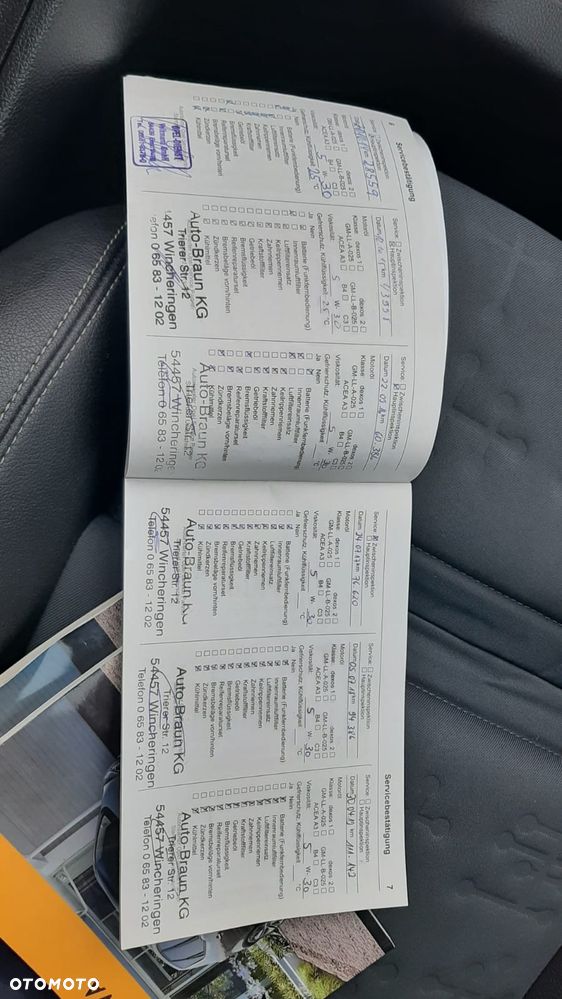 6 Servicebestätigung
Service: Zwischeninspektion
Hauptinspektion
km 28559
Motoröl
Klasse: dexos 1 dexos 2
GM-LL-A-025 GM-LL-B-025
Viskosität: 5 W- 30
Gefrierschutz, Kühlflüssigkeit 25 °C
Ja Nein
Batterie (Funkfernbedienung)
Innenraumluftfilter
Luftfiltereinsatz
Keilrippenriemen
Zahnriemen
Kraftstofffilter
Getriebeöl
Bremsflüssigkeit
Reifenreparaturset
Bremsbeläge vorn/hinten
Zündkerzen
Kühlmittel
Service: Zwischeninspektion
Hauptinspektion
Datum km
Motoröl
Klasse: dexos 1 dexos 2
GM-LL-A-025 GM-LL-B-025
ACEA A3 B4 C3
Viskosität: 5 W- 30
Gefrierschutz, Kühlflüssigkeit 25 °C
Ja Nein
Batterie (Funkfernbedienung)
Innenraumluftfilter
Luftfiltereinsatz
Keilrippenriemen
Zahnriemen
Kraftstofffilter
Getriebeöl
Bremsflüssigkeit
Reifenreparaturset
Bremsbeläge vorn/hinten
Zündkerzen
Kühlmittel
Auto-Braun KG
Trierer Str. 12
54457 Wincheringen
Telefon 0 65 83 - 12 02
Service: Zwischeninspektion
Hauptinspektion
Datum km
Motoröl
Klasse: dexos 1 dexos 2
GM-LL-A-025 GM-LL-B-025
ACEA A3 B4 C3
Viskosität: 5 W- 30
Gefrierschutz, Kühlflüssigkeit °C
Ja Nein
Batterie (Funkfernbedienung)
Innenraumluftfilter
Luftfiltereinsatz
Keilrippenriemen
Zahnriemen
Kraftstofffilter
Getriebeöl
Bremsflüssigkeit
Reifenreparaturset
Bremsbeläge vorn/hinten
Zündkerzen
Kühlmittel
Auto-Braun KG
Trierer Str. 12
54457 Wincheringen
Telefon 0 65 83 - 12 02
Service: Zwischeninspektion
Hauptinspektion
Datum 24.07.17 km 76 620
Motoröl
Klasse: dexos 1 dexos 2
GM-LL-A-025 GM-LL-B-025
ACEA A3 B4 C3
Viskosität: 5 W- 30
Gefrierschutz, Kühlflüssigkeit °C
Ja Nein
Batterie (Funkfernbedienung)
Innenraumluftfilter
Luftfiltereinsatz
Keilrippenriemen
Zahnriemen
Kraftstofffilter
Getriebeöl
Bremsflüssigkeit
Reifenreparaturset
Bremsbeläge vorn/hinten
Zündkerzen
Kühlmittel
Auto-Braun KG
Trierer Str. 12
54457 Wincheringen
Telefon 0 65 83 - 12 02
Service: Zwischeninspektion
Hauptinspektion
Datum 05.07.18 km 94 386
Motoröl
Klasse: dexos 1 dexos 2
GM-LL-A-025 GM-LL-B-025
ACEA A3 B4 C3
Viskosität: 5 W- 30
Gefrierschutz, Kühlflüssigkeit °C
Ja Nein
Batterie (Funkfernbedienung)
Innenraumluftfilter
Luftfiltereinsatz
Keilrippenriemen
Zahnriemen
Kraftstofffilter
Getriebeöl
Bremsflüssigkeit
Reifenreparaturset
Bremsbeläge vorn/hinten
Zündkerzen
Kühlmittel
Auto-Braun KG
Trierer Str. 12
54457 Wincheringen
Telefon 0 65 83 - 12 02
Servicebestätigung 7
Service: Zwischeninspektion
Hauptinspektion
Datum 30.04.19 km 111.142
Motoröl
Klasse: dexos 1 dexos 2
GM-LL-A-025 GM-LL-B-025
ACEA A3 B4 C3
Viskosität: 5 W- 30
Gefrierschutz, Kühlflüssigkeit °C
Ja Nein
Batterie (Funkfernbedienung)
Innenraumluftfilter
Luftfiltereinsatz
Keilrippenriemen
Zahnriemen
Kraftstofffilter
Getriebeöl
Bremsflüssigkeit
Reifenreparaturset
Bremsbeläge vorn/hinten
Zündkerzen
Kühlmittel
Auto-Braun KG
Trierer Str. 12
54457 Wincheringen
Telefon 0 65 83 - 12 02
OTOMOTO